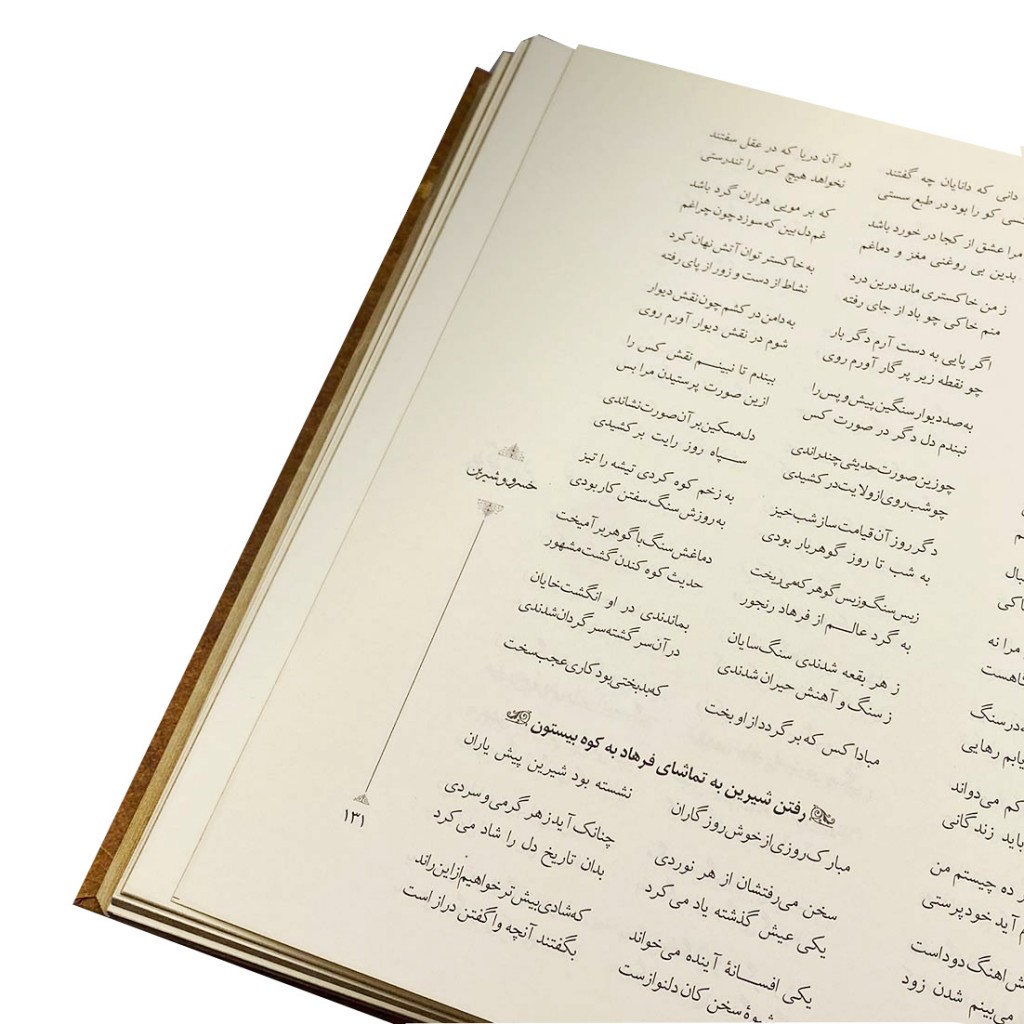 مرا نه
در سنگ
رهایی
کم می‌دواند
باید زندگانی
ده چیستم من
آید خودپرستی
اهنگ دوداست
می‌بینم شدن زود
دانی که دانایان چه گفتند در آن دریا که در عقل سفتند
کو را بود در طبع سستی نخواهد هیچ کس را تندرستی
مرا عشق از کجا در خورد باشد که بر مویی هزاران گرد باشد
بدین بی روغنی مغز و دماغم غم دل بین که سوزد چون چراغم
ز من خاکستری ماند درین درد به خاکستر توان آتش نهان کرد
منم خاکی چو باد از جای رفته نشاط از دست و زور از پای رفته
اگر پایی به دست آرم دگر بار به دامن در کشم چون نقش دیوار
چو نقطه زیر پرگار آورم روی شوم در نقش دیوار آورم روی
به صد دیوار سنگین پیش و پس را ببندم تا نبینم نقش کس را
نبندم دل دگر در صورت کس ازین صورت پرستیدن مرا بس
چو زین صورت حدیثی چند راندی دل مسکین بر آن صورت نشاندی
چو شب روی از ولایت در کشیدی سپاه روز رایت بر کشیدی
دگر روز آن قیامت ساز شب خیز به زخم کوه کردی تیشه را تیز
به شب تا روز گوهر بار بودی به روزش سنگ سفتن کار بودی
ز بس سنگ و ز بس گوهر که می‌ریخت دماغش سنگ با گوهر بر آمیخت
به گرد عالم از فرهاد رنجور حدیث کوه کندن گشت مشهور
ز هر بقعه شدندی سنگ سایان بماندندی در او انگشت خایان
ز سنگ و آهنش حیران شدندی در آن سر گشته سر گردان شدندی
مبادا کس که بر گردد از او بخت که بد بختی بود کاری عجب سخت
رفتن شیرین به تماشای فرهاد به کوه بیستون
مبارک روزی از خوش روزگاران نشسته بود شیرین پیش یاران
سخن می‌رفتشان از هر نوردی چنانک آید ز هر گرمی و سردی
یکی عیش گذشته یاد می کرد بدان تاریخ دل را شاد می کرد
یکی افسانهٔ آینده می‌خواند که شادی بیش‌تر خواهیم از این راند
شیوهٔ سخن کان دلنواز است بگفتند آنچه وا گفتن دراز است
خسرو و شیرین
۱۳۱